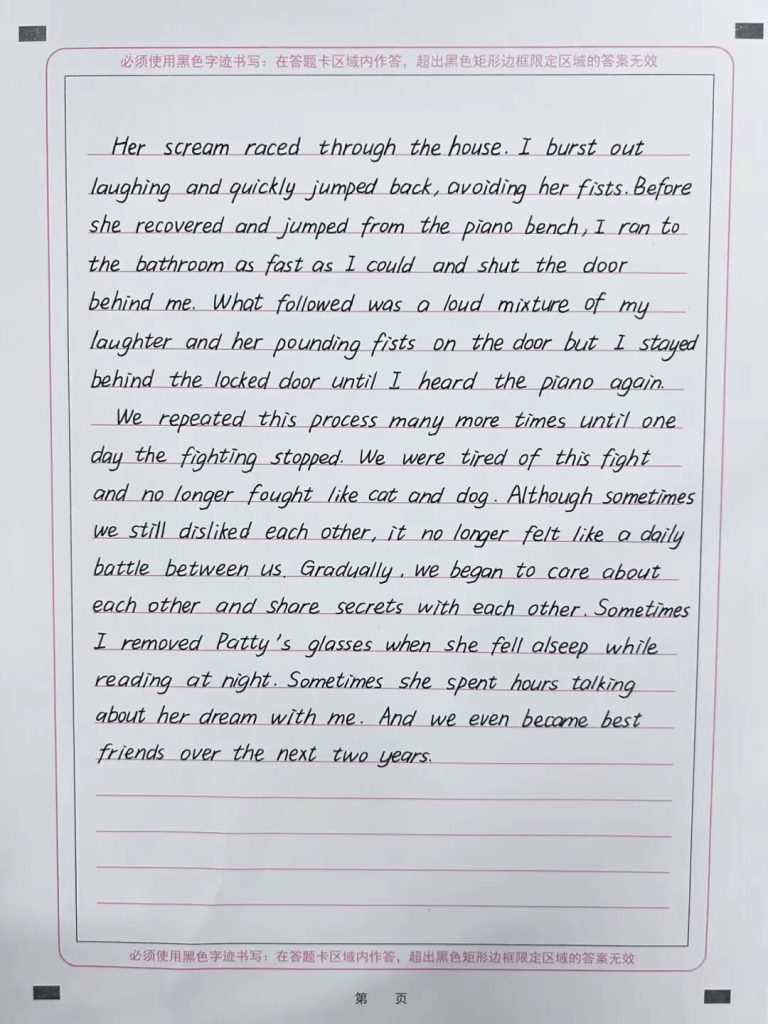 必须使用黑色字迹书写：在答题卡区域内作答，超出黑色矩形边框限定区域的答案无效
Her scream raced through the house. I burst out
laughing and quickly jumped back, avoiding her fists. Before
she recovered and jumped from the piano bench, I ran to
the bathroom as fast as I could and shut the door
behind me. What followed was a loud mixture of my
laughter and her pounding fists on the door but I stayed
behind the locked door until I heard the piano again.
We repeated this process many more times until one
day the fighting stopped. We were tired of this fight
and no longer fought like cat and dog. Although sometimes
we still disliked each other, it no longer felt like a daily
battle between us. Gradually, we began to care about
each other and share secrets with each other. Sometimes
I removed Patty's glasses when she fell alseep while
reading at night. Sometimes she spent hours talking
about her dream with me. And we even became best
friends over the next two years.
必须使用黑色字迹书写：在答题卡区域内作答，超出黑色矩形边框限定区域的答案无效
第 页